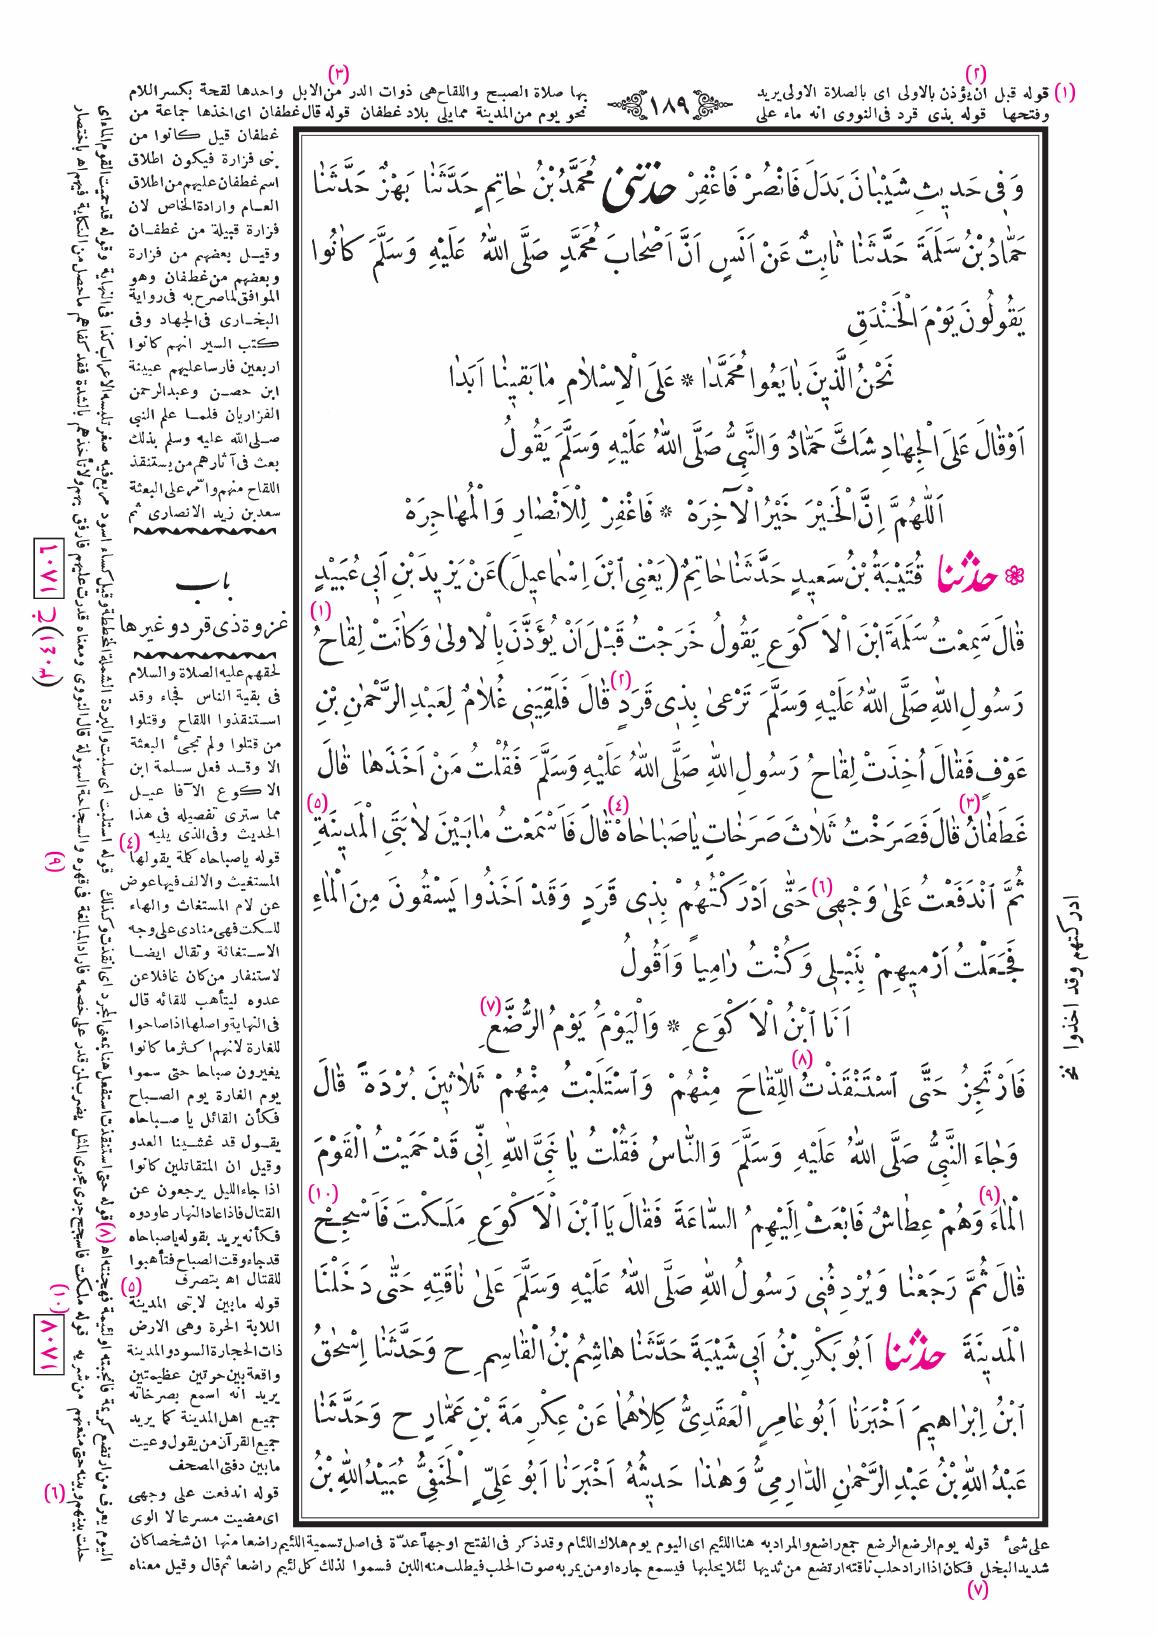 ﴿١٨٩﴾
(١) قوله قبل ان يؤذن بالاولى اى بالصلاة الاولى يريد
بها صلاة الصبح واللقاح هى ذوات الدر من الابل واحدها لقحة بكسر اللام
وفتحها قوله بذى قرد فى النووى انه ماء على
نحو يوم من المدينة مما يلى بلاد غطفان قوله قال غطفان اى اخذها جماعة من
(٢)
(٣)
وَفِى حَدِيثِ شَيْبَانَ بَدَلَ فَانْصُرْ فَاغْفِرْ حَدَّثَنِى مُحَمَّدُ بْنُ حَاتِمٍ حَدَّثَنَا بَهْزٌ حَدَّثَنَا
حَمَّادُ بْنُ سَلَمَةَ حَدَّثَنَا ثَابِتٌ عَنْ اَنَسٍ اَنَّ اَصْحَابَ مُحَمَّدٍ صَلَّى اللّٰهُ عَلَيْهِ وَسَلَّمَ كَانُوا
يَقُولُونَ يَوْمَ الْخَنْدَقِ
نَحْنُ الَّذِينَ بَايَعُوا مُحَمَّدَا * عَلَى الْاِسْلَامِ مَا بَقِينَا اَبَدَا
اَوْ قَالَ عَلَى الْجِهَادِ شَكَّ حَمَّادٌ وَالنَّبِىُّ صَلَّى اللّٰهُ عَلَيْهِ وَسَلَّمَ يَقُولُ
اَللّٰهُمَّ اِنَّ الْخَيْرَ خَيْرُ الْآخِرَهْ * فَاغْفِرْ لِلْاَنْصَارِ وَالْمُهَاجِرَهْ
❁ حَدَّثَنَا قُتَيْبَةُ بْنُ سَعِيدٍ حَدَّثَنَا حَاتِمٌ (يَعْنِى ابْنَ اِسْمَاعِيلَ) عَنْ يَزِيدَ بْنِ اَبِى عُبَيْدٍ
قَالَ سَمِعْتُ سَلَمَةَ ابْنَ الْاَكْوَعِ يَقُولُ خَرَجْتُ قَبْلَ اَنْ يُؤَذَّنَ بِالْاُولَىٰ وَكَانَتْ لِقَاحُ (١)
رَسُولِ اللّٰهِ صَلَّى اللّٰهُ عَلَيْهِ وَسَلَّمَ تَرْعَىٰ بِذِى قَرَدٍ (٢) قَالَ فَلَقِيَنِى غُلَامٌ لِعَبْدِ الرَّحْمٰنِ بْنِ
عَوْفٍ فَقَالَ اُخِذَتْ لِقَاحُ رَسُولِ اللّٰهِ صَلَّى اللّٰهُ عَلَيْهِ وَسَلَّمَ فَقُلْتُ مَنْ اَخَذَهَا قَالَ
غَطَفَانُ (٣) قَالَ فَصَرَخْتُ ثَلَاثَ صَرَخَاتٍ يَا صَبَاحَاهْ (٤) قَالَ فَاَسْمَعْتُ مَا بَيْنَ لَابَتَىِ الْمَدِينَةِ (٥)
ثُمَّ انْدَفَعْتُ عَلَىٰ وَجْهِى (٦) حَتَّى اَدْرَكْتُهُمْ بِذِى قَرَدٍ وَقَدْ اَخَذُوا يَسْقُونَ مِنَ الْمَاءِ
فَجَعَلْتُ اَرْمِيهِمْ بِنَبْلِى وَكُنْتُ رَامِياً وَاَقُولُ
اَنَا ابْنُ الْاَكْوَعِ * وَالْيَوْمُ يَوْمُ الرُّضَّعِ (٧)
فَاَرْتَجِزُ حَتَّى اسْتَنْقَذْتُ (٨) اللِّقَاحَ مِنْهُمْ وَاسْتَلَبْتُ مِنْهُمْ ثَلَاثِينَ بُرْدَةً قَالَ
وَجَاءَ النَّبِىُّ صَلَّى اللّٰهُ عَلَيْهِ وَسَلَّمَ وَالنَّاسُ فَقُلْتُ يَا نَبِىَّ اللّٰهِ اِنِّى قَدْ حَمَيْتُ الْقَوْمَ
الْمَاءَ (٩) وَهُمْ عِطَاشٌ فَابْعَثْ اِلَيْهِمُ السَّاعَةَ فَقَالَ يَا ابْنَ الْاَكْوَعِ مَلَكْتَ فَاَسْجِحْ (١٠)
قَالَ ثُمَّ رَجَعْنَا وَيُرْدِفُنِى رَسُولُ اللّٰهِ صَلَّى اللّٰهُ عَلَيْهِ وَسَلَّمَ عَلَىٰ نَاقَتِهِ حَتَّى دَخَلْنَا
الْمَدِينَةَ حَدَّثَنَا اَبُو بَكْرِ بْنُ اَبِى شَيْبَةَ حَدَّثَنَا هَاشِمُ بْنُ الْقَاسِمِ ح وَحَدَّثَنَا اِسْحٰقُ
ابْنُ اِبْرَاهِيمَ اَخْبَرَنَا اَبُو عَامِرٍ الْعَقَدِىُّ كِلَاهُمَا عَنْ عِكْرِمَةَ بْنِ عَمَّارٍ ح وَحَدَّثَنَا
عَبْدُ اللّٰهِ بْنُ عَبْدِ الرَّحْمٰنِ الدَّارِمِىُّ وَهٰذَا حَدِيثُهُ اَخْبَرَنَا اَبُو عَلِىٍّ الْحَنَفِىُّ عُبَيْدُ اللّٰهِ بْنُ
ادركتهم وقد اخذوا نخ
غطفان قيل كانوا من
بنى فزارة فيكون اطلاق
اسم غطفان عليهم من اطلاق
العام وارادة الخاص لان
فزارة قبيلة من غطفان
وقيل بعضهم من فزارة
وبعضهم من غطفان وهو
الموافق لما صرح به فى رواية
البخارى فى الجهاد وفى
كتب السير انهم كانوا
اربعين فارسا عليهم عيينة
ابن حصن وعبد الرحمن
الفزاريان فلما علم النبي
صلى الله عليه وسلم بذلك
بعث فى آثارهم من يستنقذ
اللقاح منهم وامر على البعثة
سعد بن زيد الانصارى ثم
باب
غزوة ذى قرد وغيرها
لحقهم عليه الصلاة والسلام
فى بقية الناس فجاء وقد
استنقذوا اللقاح وقتلوا
من قتلوا ولم تجئ البعثة
الا وقد فعل سلمة ابن
الاكوع الافاعيل
مما سترى تفصيله فى هذا
الحديث وفى الذى يليه
(٤) قوله ياصباحاه كلمة يقولها
المستغيث والالف فيها عوض
عن لام المستغاث والهاء
للسكت فهى منادى على وجه
الاستغاثة وتقال ايضا
لاستنفار من كان غافلا عن
عدوه ليتأهب للقائه قال
فى النهاية واصلها اذا صاحوا
للغارة لانهم اكثر ما كانوا
يغيرون صباحا حتى سموا
يوم الغارة يوم الصباح
فكأن القائل يا صباحاه
يقول قد غشينا العدو
وقيل ان المتقاتلين كانوا
اذا جاء الليل يرجعون عن
القتال فاذا عاد النهار عاودوه
فكأنه يريد بقوله ياصباحاه
قد جاء وقت الصباح فتأهبوا
للقتال اه بتصرف
(٥) قوله ما بين لابتى المدينة
اللابة الحرة وهى الارض
ذات الحجارة السود والمدينة
واقعة بين حرتين عظيمتين
يريد انه اسمع بصرخاته
جميع اهل المدينة كما يريد
جميع القرآن من يقول وعيت
ما بين دفتى المصحف
(٦) قوله اندفعت على وجهى
اى مضيت مسرعا لا الوى
على شئ قوله يوم الرضع الرضع جمع راضع والمراد به هنا اللئيم اى اليوم يوم هلاك اللئام وقد ذكر فى الفتح اوجهاً عدّة فى اصل تسمية اللئيم راضعا منها ان شخصا كان
شديد البخل فكان اذا اراد حلب ناقته ارتضع من ثديها لئلا يحلبها فيسمع جاره او من يمر به صوت الحلب فيطلب منه اللبن فسموا لذلك كل لئيم راضعا ثم قال وقيل معناه
(٧)
اليوم يعرف من ارتضع كريمة فانجبته او لئيمة فهجنته اه (٨) قوله حتى استنقذت استفعل هنا بمعنى المجرد اى انقذت وكذلك قوله استلبت اى سلبت والبردة الشملة المخططة وقيل كساء اسود مربع فيه صغر تلبسه الاعراب كذا فى النهاية وقوله قد حميت القوم الماء اى
حلت بينهم وبينه حتى منعتهم من شربه قوله ملكت فاسجح جرى مجرى المثل يضرب لمن قدر على خصمه فاراد المبالغة فى قهره والسجاحة السهولة قال النووى ومعناه قدرت عليهم فارفق بهم ولا تأخذهم بالشدة فقد كفاهم ما حصل من النكاية فيهم اه باختصار
(٩)
(١٠)
١٨٠٦
ج(١٤٠٣)
١٨٠٧